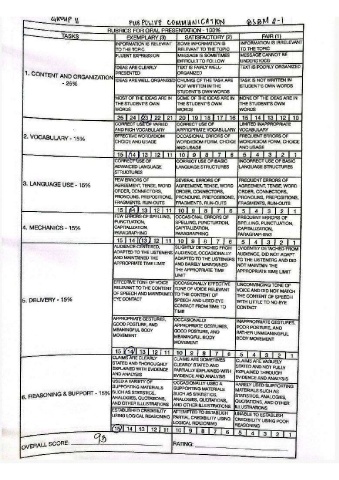 GROUP 11 PURPOSIVE COMMUNICATION BSBM 2-1
RUBRICS FOR ORAL PRESENTATION - 100%
TASKS EXEMPLARY (3) SATISFACTORY (2) FAIR (1)
1. CONTENT AND ORGANIZATION - 25%
INFORMATION IS RELEVANT TO THE TOPIC SOME INFORMATION IS RELEVANT TO THE TOPIC INFORMATION IS IRRELEVANT TO THE TOPIC
FLUENT EXPRESSION MESSAGE IS SOMETIMES DIFFICULT TO FOLLOW MESSAGE CANNOT BE UNDERSTOOD
IDEAS ARE CLEARLY PRESENTED TEXT IS WELL-ORGANIZED TEXT IS POORLY ORGANIZED
IDEAS ARE WELL ORGANIZED CHUNKS OF THE TASK ARE NOT WRITTEN IN THE STUDENT'S OWN WORDS TASK IS NOT WRITTEN IN STUDENT'S OWN WORDS
MOST OF THE IDEAS ARE IN THE STUDENT'S OWN WORDS SOME OF THE IDEAS ARE IN THE STUDENT'S OWN WORDS NONE OF THE IDEAS ARE IN THE STUDENT'S OWN WORDS
25 24 23 22 21 20 19 18 17 16 15 14 13 12 10
2. VOCABULARY - 15%
CORRECT USE OF VARIED AND RICH VOCABULARY CORRECT USE OF APPROPRIATE VOCABULARY LIMITED INAPPROPRIATE VOCABULARY
EFFECTIVE WORD/IDIOM CHOICE AND USAGE OCCASIONAL ERRORS OF WORD/IDIOM FORM, CHOICE AND USAGE FREQUENT ERRORS OF WORD/IDIOM FORM, CHOICE AND USAGE
15 14 13 12 11 10 9 8 7 6 5 4 3 2 1
3. LANGUAGE USE - 15%
CORRECT USE OF ADVANCED LANGUAGE STRUCTURES CORRECT USE OF BASIC LANGUAGE STRUCTURES INCORRECT USE OF BASIC LANGUAGE STRUCTURES
FEW ERRORS OF AGREEMENT, TENSE, WORD ORDER, CONNECTORS, PRONOUNS, PREPOSITIONS, FRAGMENTS, RUN-OUTS SEVERAL ERRORS OF AGREEMENT, TENSE, WORD ORDER, CONNECTORS, PRONOUNS, PREPOSITIONS, FRAGMENTS, RUN-OUTS FREQUENT ERRORS OF AGREEMENT, TENSE, WORD ORDER, CONNECTORS, PRONOUNS, PREPOSITIONS, FRAGMENTS, RUN-OUTS
15 14 13 12 11 10 9 8 7 6 5 4 3 2 1
4. MECHANICS - 15%
FEW ERRORS OF SPELLING, PUNCTUATION, CAPITALIZATION, PARAGRAPHING OCCASIONAL ERRORS OF SPELLING, PUNCTUATION, CAPITALIZATION, PARAGRAPHING FREQUENT ERRORS OF SPELLING, PUNCTUATION, CAPITALIZATION, PARAGRAPHING
15 14 13 12 11 10 9 8 7 6 5 4 3 2 1
5. DELIVERY - 15%
AUDIENCE-CENTERED, ADAPTED TO THE LISTENERS AND MAINTAINED THE APPROPRIATE TIME LIMIT SLIGHTLY DETACHED FROM AUDIENCE, OCCASIONALLY ADAPTED TO THE LISTENERS AND BARELY MAINTAINED THE APPROPRIATE TIME LIMIT EVIDENTLY DETACHED FROM AUDIENCE, DID NOT ADAPT TO THE LISTENERS AND DID NOT MAINTAIN THE APPROPRIATE TIME LIMIT
EFFECTIVE TONE OF VOICE RELEVANT TO THE CONTENT OF SPEECH AND MAINTAINED EYE CONTACT OCCASIONALLY EFFECTIVE TONE OF VOICE RELEVANT TO THE CONTENT OF SPEECH AND USED EYE CONTACT FROM TIME TO TIME UNCONVINCING TONE OF VOICE AND DID NOT MATCH THE CONTENT OF SPEECH WITH LITTLE TO NO EYE CONTACT
APPROPRIATE GESTURES, GOOD POSTURE, AND MEANINGFUL BODY MOVEMENT OCCASIONALLY APPROPRIATE GESTURES, GOOD POSTURE, AND MEANINGFUL BODY MOVEMENT INAPPROPRIATE GESTURES, POOR POSTURE, AND RATHER UNMEANINGFUL BODY MOVEMENT
15 14 13 12 11 10 9 8 7 6 5 4 3 2 1
6. REASONING & SUPPORT - 15%
CLAIMS ARE CLEARLY STATED AND THOROUGHLY EXPLAINED WITH EVIDENCE AND ANALYSIS CLAIMS ARE SOMETIMES CLEARLY STATED AND PARTIALLY EXPLAINED WITH EVIDENCE AND ANALYSIS CLAIMS ARE VAGUELY STATED AND NOT FULLY EXPLAINED THROUGH EVIDENCE AND ANALYSIS
USED A VARIETY OF SUPPORTING MATERIALS SUCH AS STATISTICS, ANALOGIES, QUOTATIONS, AND OTHER ILLUSTRATIONS OCCASIONALLY USED A SUPPORTING MATERIALS SUCH AS STATISTICS, ANALOGIES, QUOTATIONS, AND OTHER ILLUSTRATIONS RARELY USED SUPPORTING MATERIALS SUCH AS STATISTICS, ANALOGIES, QUOTATIONS, AND OTHER ILLUSTRATIONS
ESTABLISHED CREDIBILITY USING LOGICAL REASONING ATTEMPTED TO ESTABLISH PARTIAL CREDIBILITY USING LOGICAL REASONING UNABLE TO ESTABLISH CREDIBILITY USING POOR REASONING
15 14 13 12 11 10 9 8 7 6 5 4 3 2 1
OVERALL SCORE: 93 RATING: